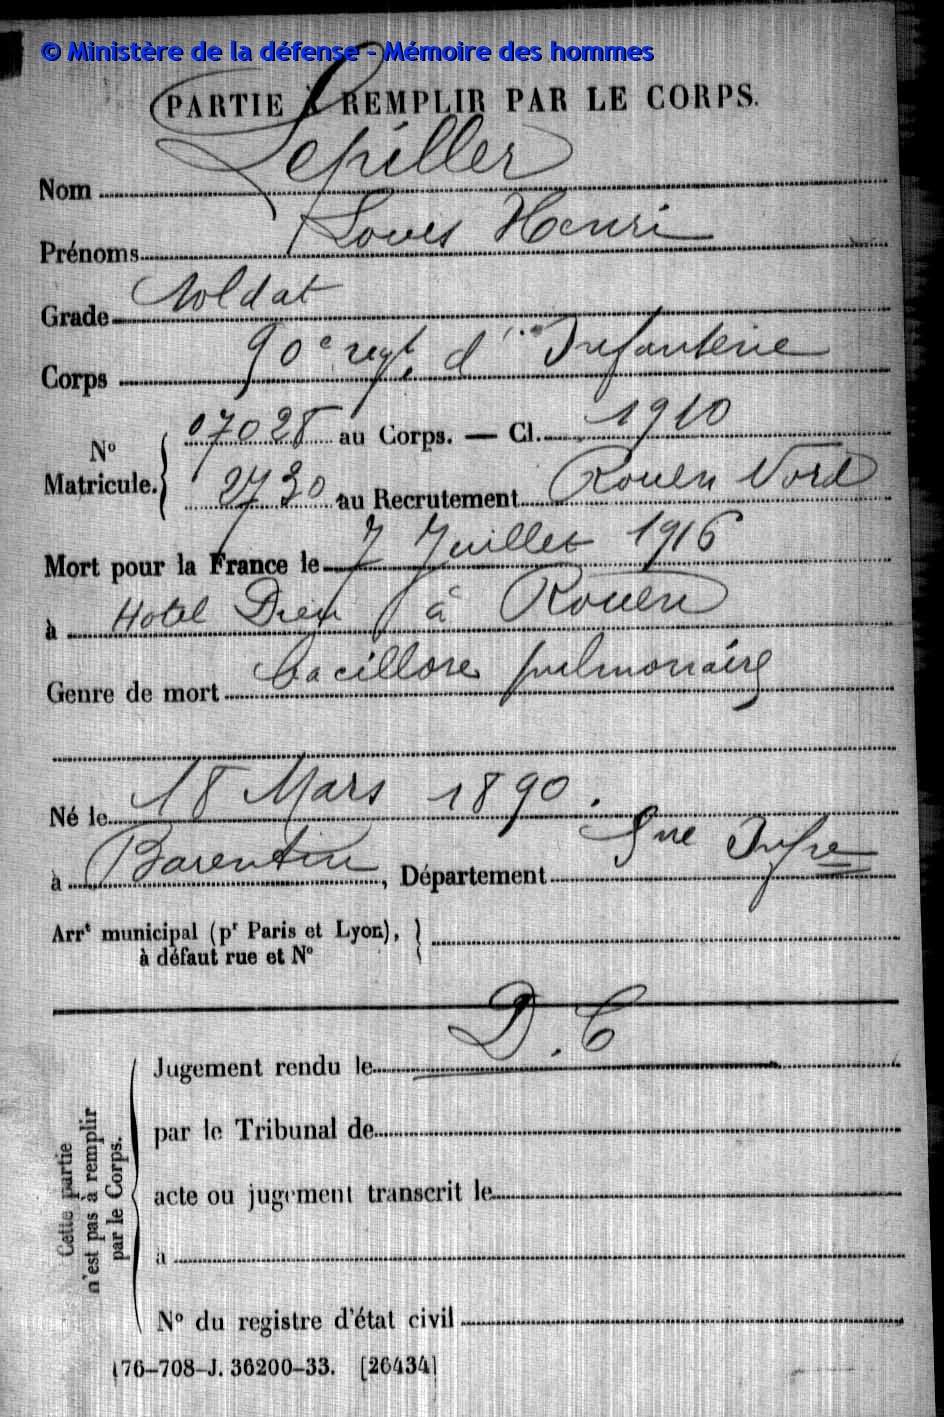 © Ministère de la défense - Mémoire des hommes
PARTIE À REMPLIR PAR LE CORPS.
Nom Lepiller
Prénoms Louis Henri
Grade Soldat
Corps 90e regt d'Infanterie
N° Matricule. 07028 au Corps. — Cl. 1910
2730 au Recrutement Rouen Nord
Mort pour la France le 7 Juillet 1916
à Hotel Dieu à Rouen
Genre de mort bacillose pulmonaire
Né le 18 Mars 1890.
à Barentin, Département Sne Infre
Arrt municipal (pr Paris et Lyon),
à défaut rue et N°
D.C
Cette partie
n'est pas à remplir
par le Corps.
Jugement rendu le
par le Tribunal de
acte ou jugement transcrit le
à
N° du registre d'état civil
176-708-J. 36200-33. [26434]